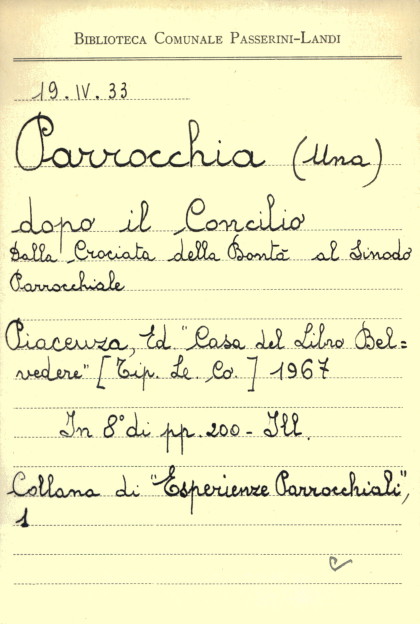 BIBLIOTECA COMUNALE PASSERINI-LANDI
19.IV.33
Parrocchia (Una)
dopo il Concilio
Dalla Crociata della Bontà al Sinodo
Parrocchiale
Piacenza, Ed. "Casa del Libro Bel=
vedere" [Tip. Le. Co.] 1967
In 8° di pp. 200 - Ill.
Collana di "Esperienze Parrocchiali",
1